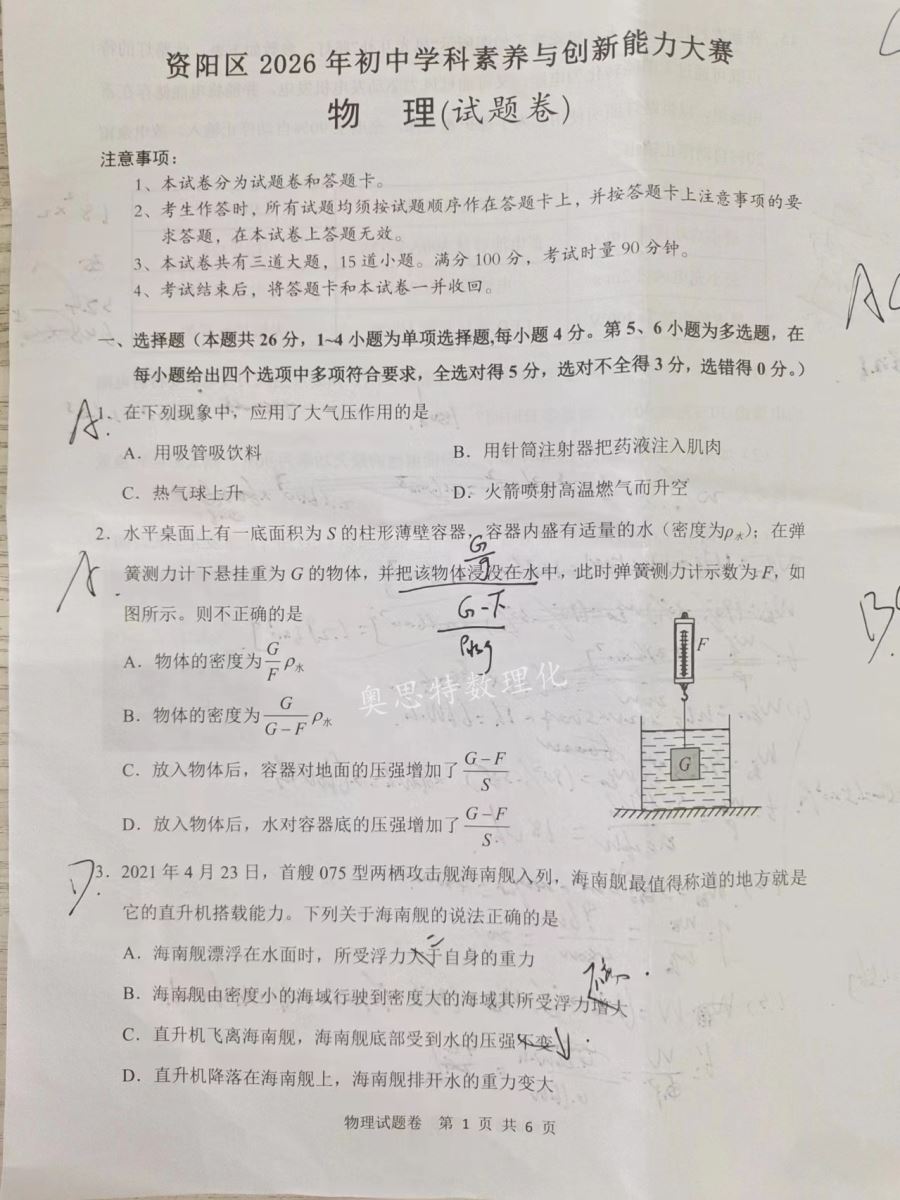 资阳区 2026 年初中学科素养与创新能力大赛
物 理(试题卷)
注意事项：
1、本试卷分为试题卷和答题卡。
2、考生作答时，所有试题均须按试题顺序作在答题卡上，并按答题卡上注意事项的要
求答题，在本试卷上答题无效。
3、本试卷共有三道大题，15 道小题。满分 100 分，考试时量 90 分钟。
4、考试结束后，将答题卡和本试卷一并收回。
一、选择题（本题共 26 分，1~4 小题为单项选择题,每小题 4 分。第 5、6 小题为多选题，在
每小题给出四个选项中多项符合要求，全选对得 5 分，选对不全得 3 分，选错得 0 分。）
A 1．在下列现象中，应用了大气压作用的是
A．用吸管吸饮料 B．用针筒注射器把药液注入肌肉
C．热气球上升 D．火箭喷射高温燃气而升空
2．水平桌面上有一底面积为 S 的柱形薄壁容器，容器内盛有适量的水（密度为ρ水）；在弹
A 簧测力计下悬挂重为 G 的物体，并把该物体浸没在水中，此时弹簧测力计示数为 F，如
图所示。则不正确的是
G/g
G-F/ρ水g
A．物体的密度为 G/F ρ水
B．物体的密度为 G/(G－F) ρ水
C．放入物体后，容器对地面的压强增加了 (G－F)/S
D．放入物体后，水对容器底的压强增加了 (G－F)/S
F
G
奥思特数理化
D 3．2021 年 4 月 23 日，首艘 075 型两栖攻击舰海南舰入列，海南舰最值得称道的地方就是
它的直升机搭载能力。下列关于海南舰的说法正确的是
A．海南舰漂浮在水面时，所受浮力大于自身的重力
B．海南舰由密度小的海域行驶到密度大的海域其所受浮力增大
C．直升机飞离海南舰，海南舰底部受到水的压强不变
D．直升机降落在海南舰上，海南舰排开水的重力变大
物理试题卷 第 1 页 共 6 页